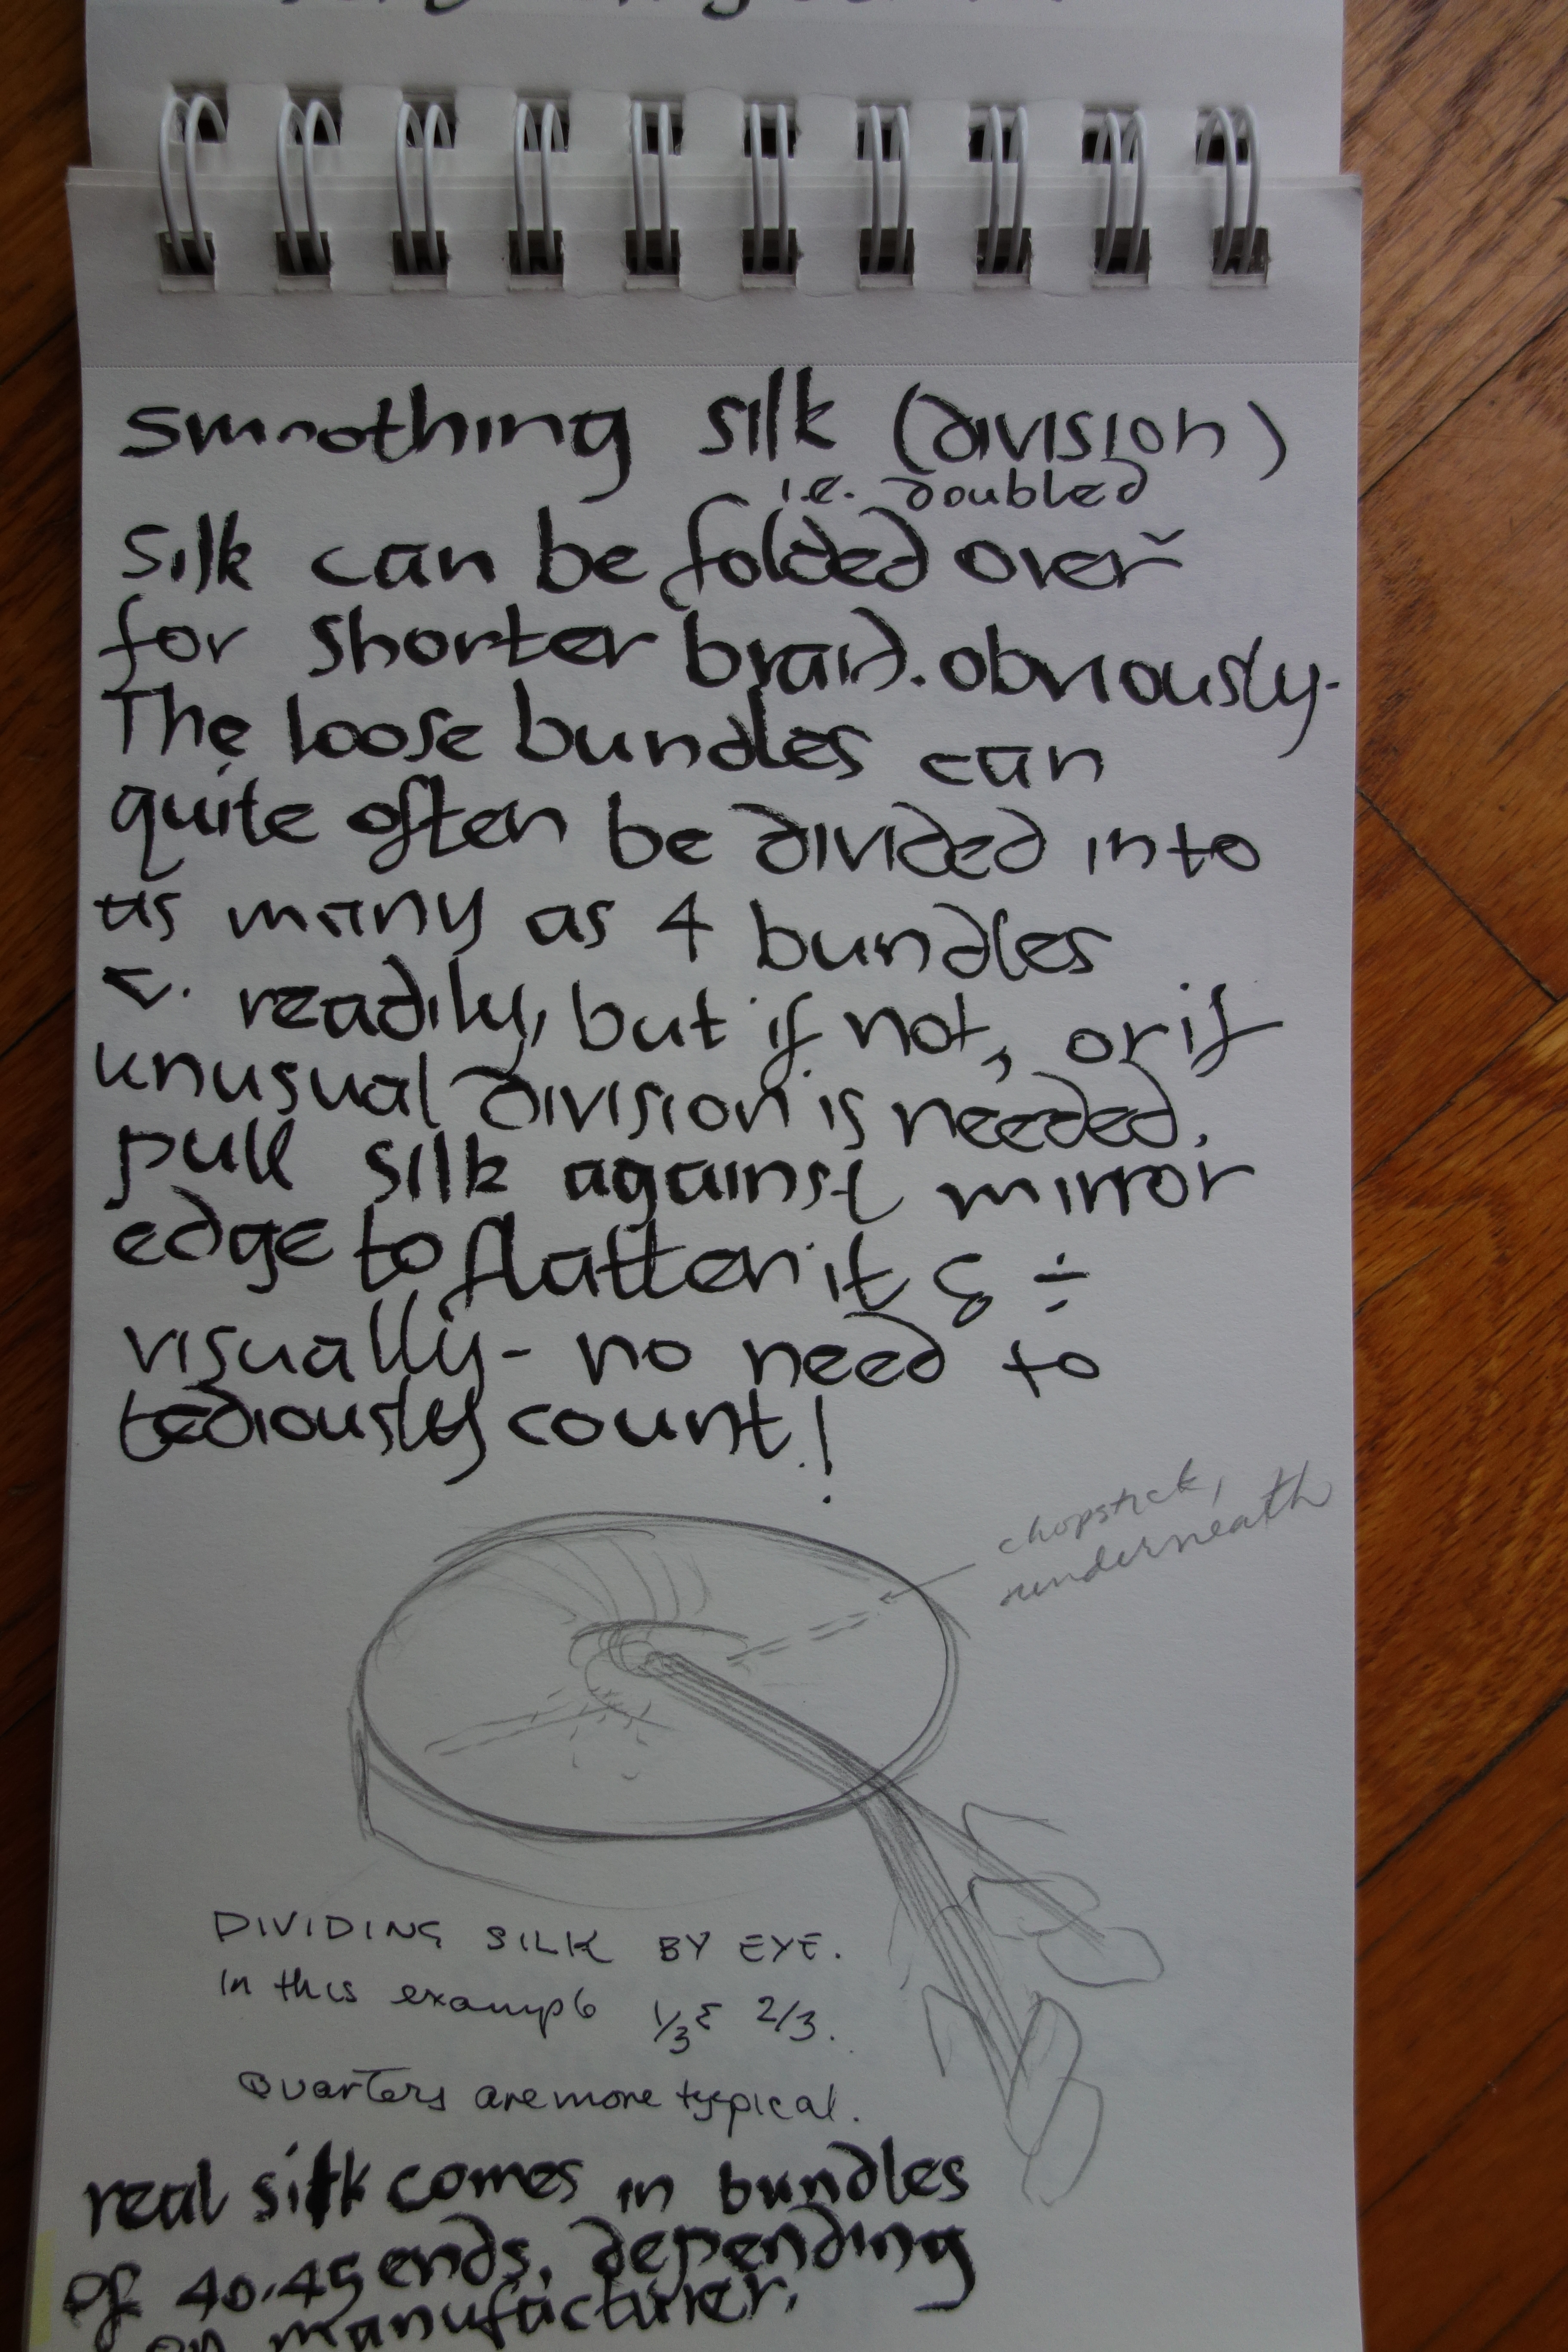 smoothing silk (division)
i.e. doubled
Silk can be folded over
for shorter braid. obviously.
The loose bundles can
quite often be divided into
as many as 4 bundles
v. readily, but if not, or if
unusual division is needed,
pull silk against mirror
edge to flatten it & ÷
visually - no need to
tediously count!
chopstick,
underneath
DIVIDING SILK BY EYE.
in this example 1/3 & 2/3.
Quarters are more typical.
real silk comes in bundles
of 40-45 ends, depending
on manufacturer.